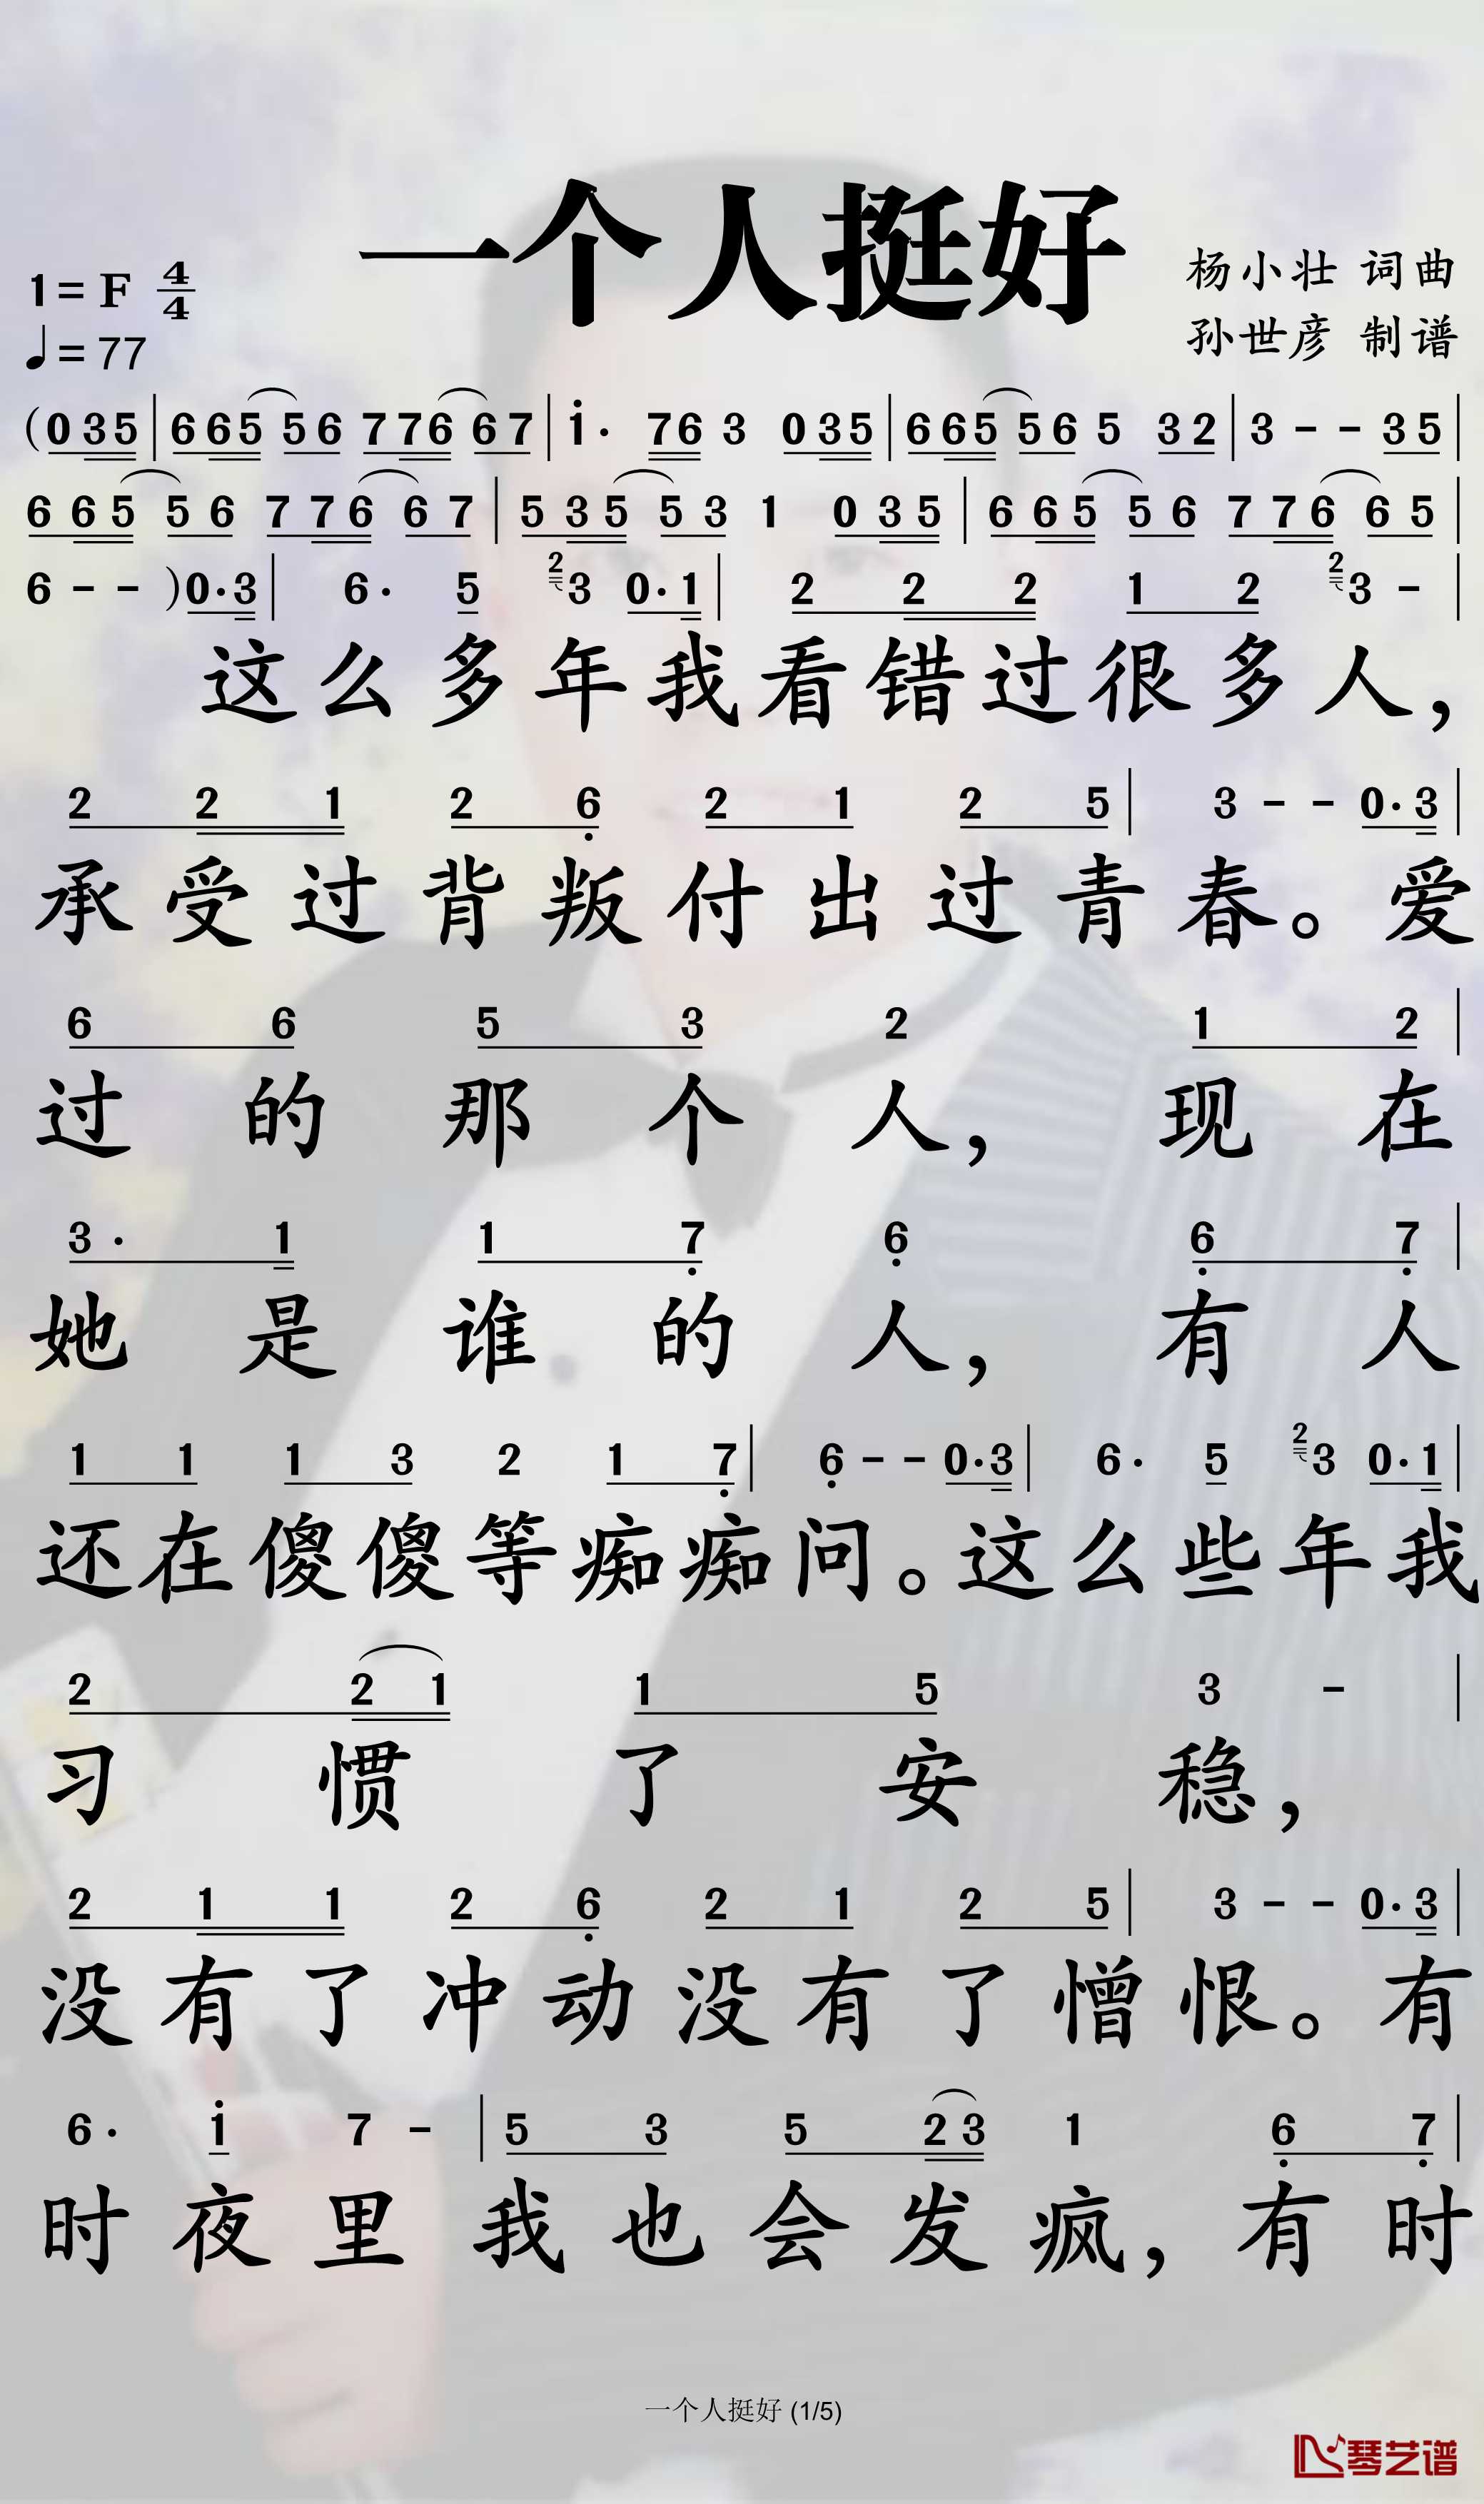 一个人挺好
1=F 4/4
♩=77
杨小壮 词曲
孙世彦 制谱
(0 3 5 | 6 6 5 5 6 7 7 6 6 7 | i· 7 6 3 0 3 5 | 6 6 5 5 6 5 3 2 | 3 - - 3 5 |
6 6 5 5 6 7 7 6 6 7 | 5 3 5 5 3 1 0 3 5 | 6 6 5 5 6 7 7 6 6 5 |
6 - - )0·3 | 6· 5 2 3 0·1 | 2 2 2 1 2 2 3 - |
这么多年我看错过很多人，
2 2 1 2 6 2 1 2 5 | 3 - - 0·3 |
承受过背叛付出过青春。爱
6 6 5 3 2 1 2 |
过的那个人，现在
3· 1 1 7 6 6 7 |
她是谁的人，有人
1 1 1 3 2 1 7 | 6 - - 0·3 | 6· 5 2 3 0·1 |
还在傻傻等痴痴问。这么些年我
2 2 1 1 5 3 - |
习惯了安稳，
2 1 1 2 6 2 1 2 5 | 3 - - 0·3 |
没有了冲动没有了憎恨。有
6· i 7 - | 5 3 5 2 3 1 6 7 |
时夜里我也会发疯，有时
一个人挺好 (1/5)
琴艺谱